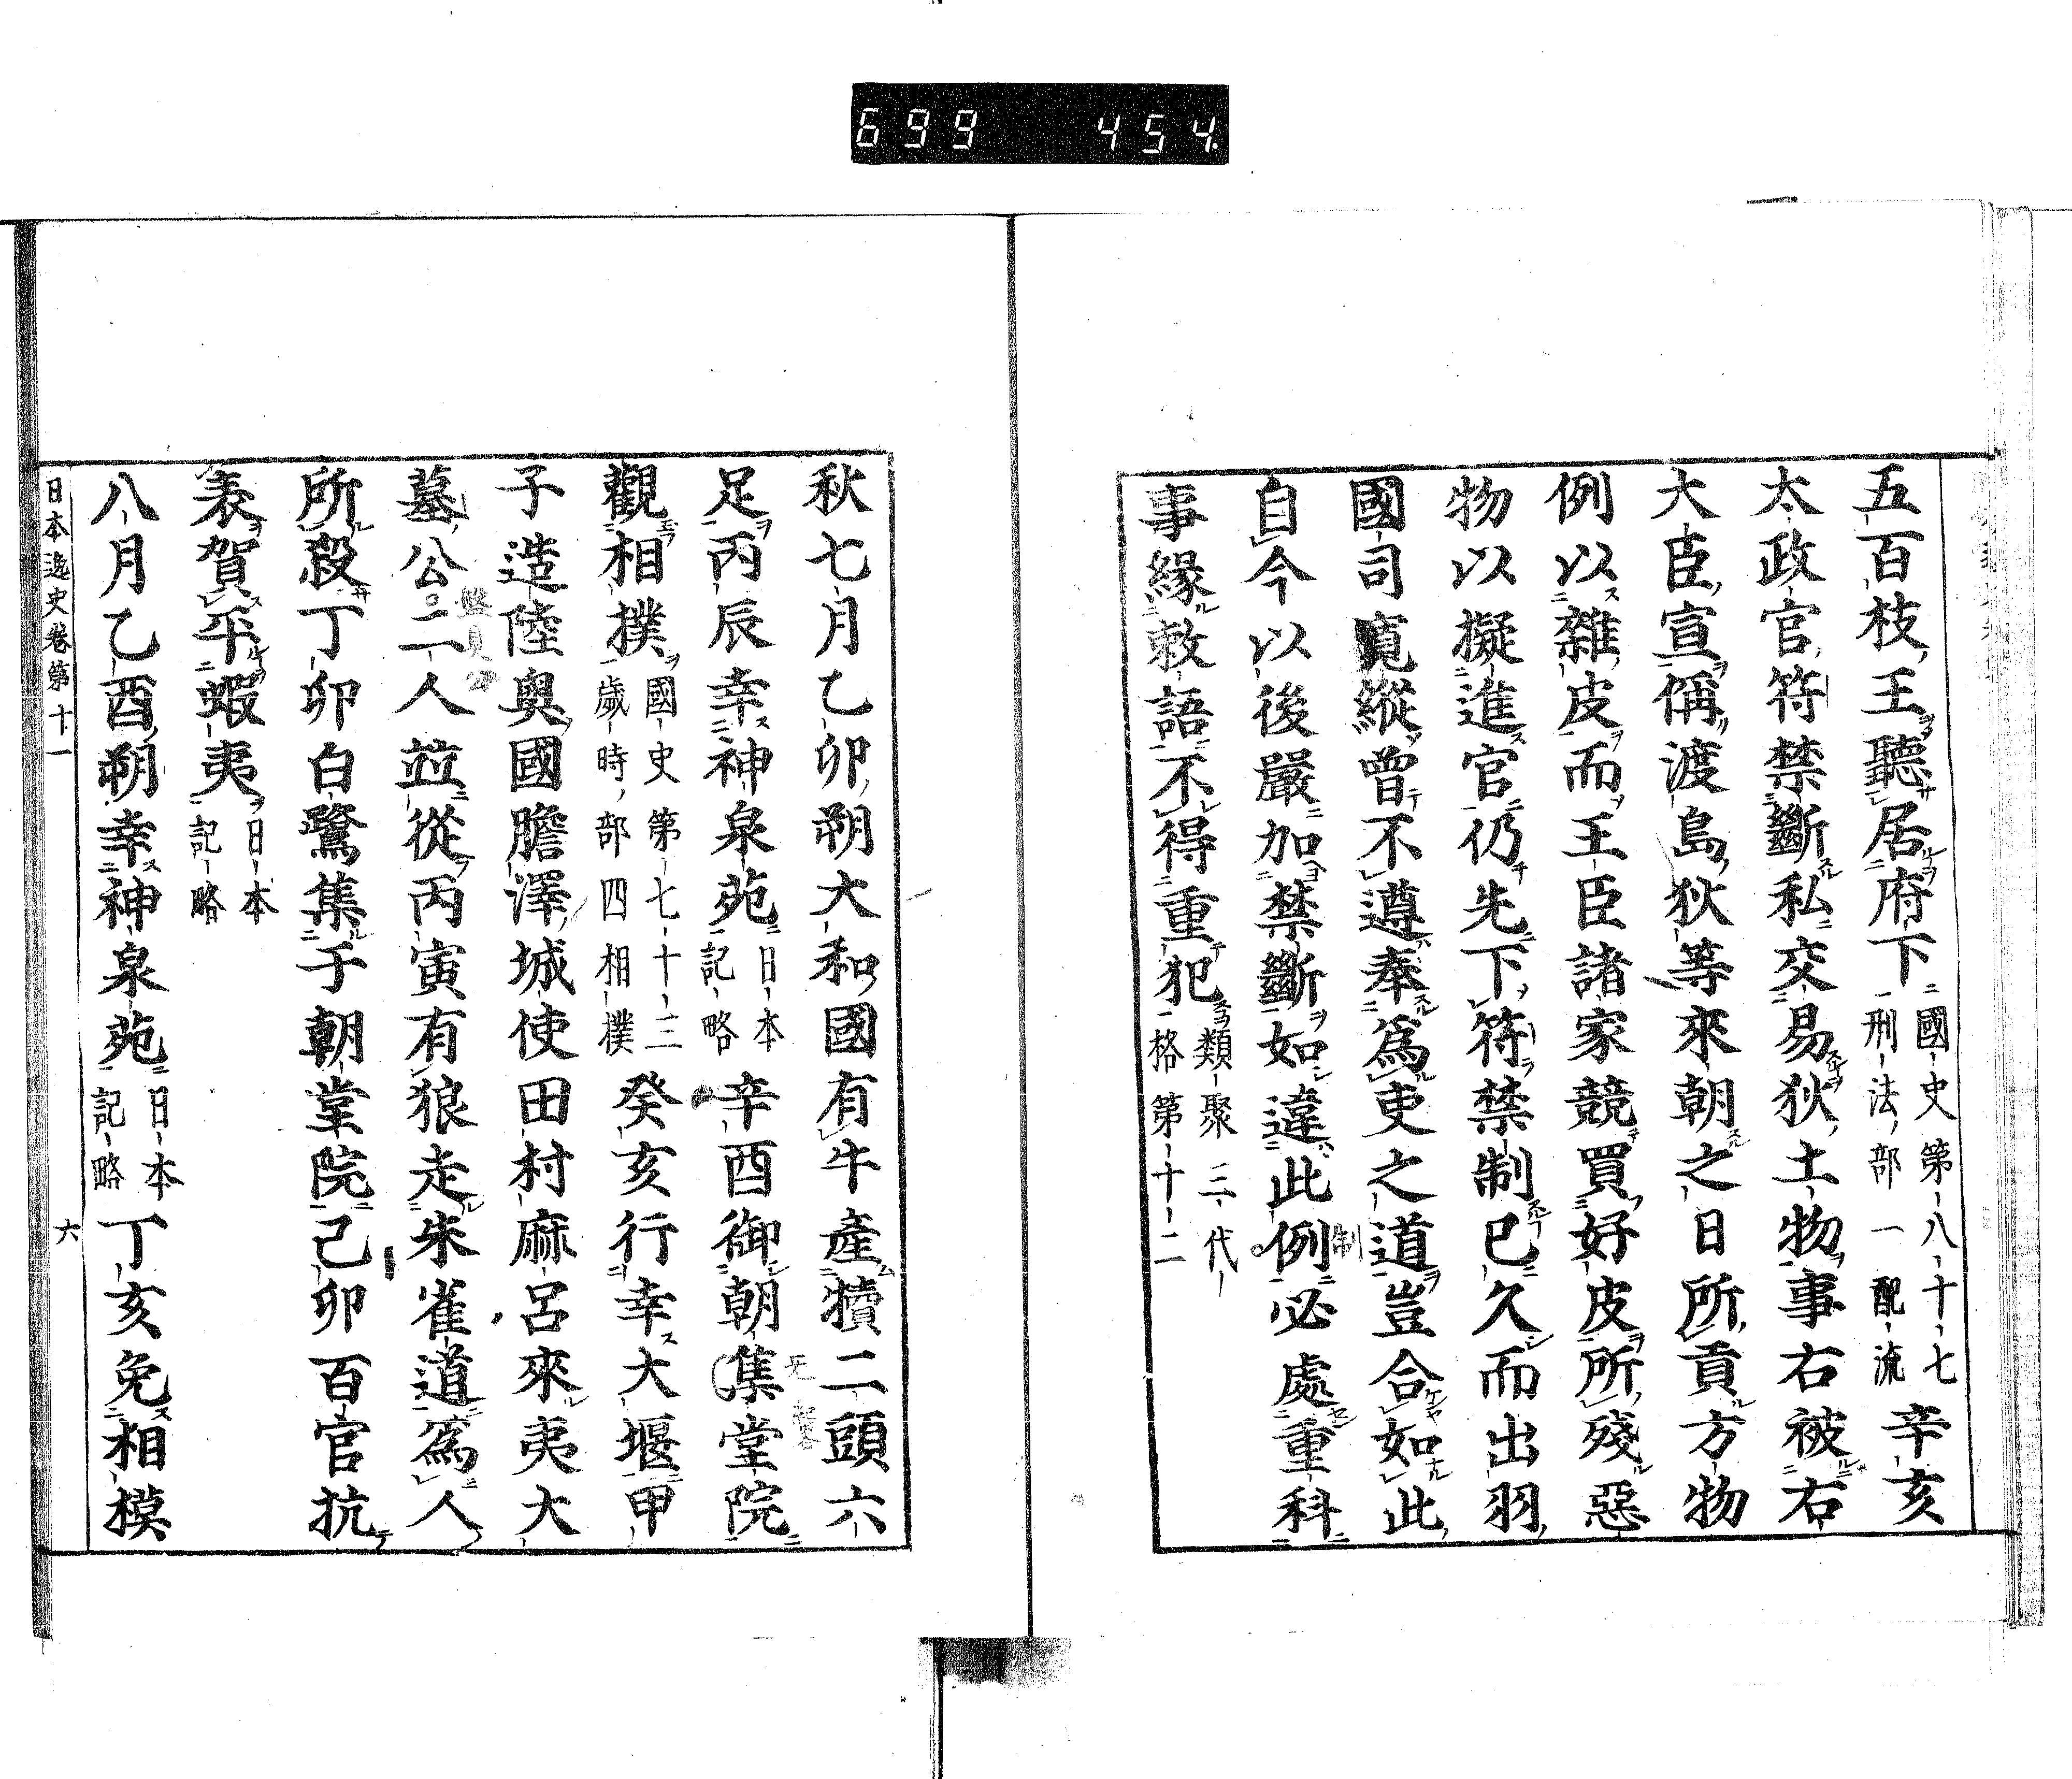 699 454.
五百枝王聽居府下國史第八十七刑法部一配流辛亥
太政官符禁斷私交易狄土物事右被右
大臣宣稱渡島狄等來朝之日所貢方物
例以雜皮而王臣諸家競買好皮所殘惡
物以擬進官仍先下符禁制已久而出羽
國司寬縱曾不遵奉爲吏之道豈合如此
自今以後嚴加禁斷如違此例必處重科
制
事緣敕語不得重犯類聚三代格第十二
秋七月乙卯朔大和國有牛產犢二頭六
足丙辰幸神泉苑日本記略辛酉御朝集堂院
觀相撲國史第七十三歲時部四相撲癸亥行幸大堰甲
子造陸奧國膽澤城使田村麻呂來夷大
墓公二人並從丙寅有狼走朱雀道爲人
盤具公
所殺丁卯白鷺集于朝堂院己卯百官抗
表賀平蝦夷日本記略
八月乙酉朔幸神泉苑日本記略丁亥免相模
日本逸史卷第十一 六